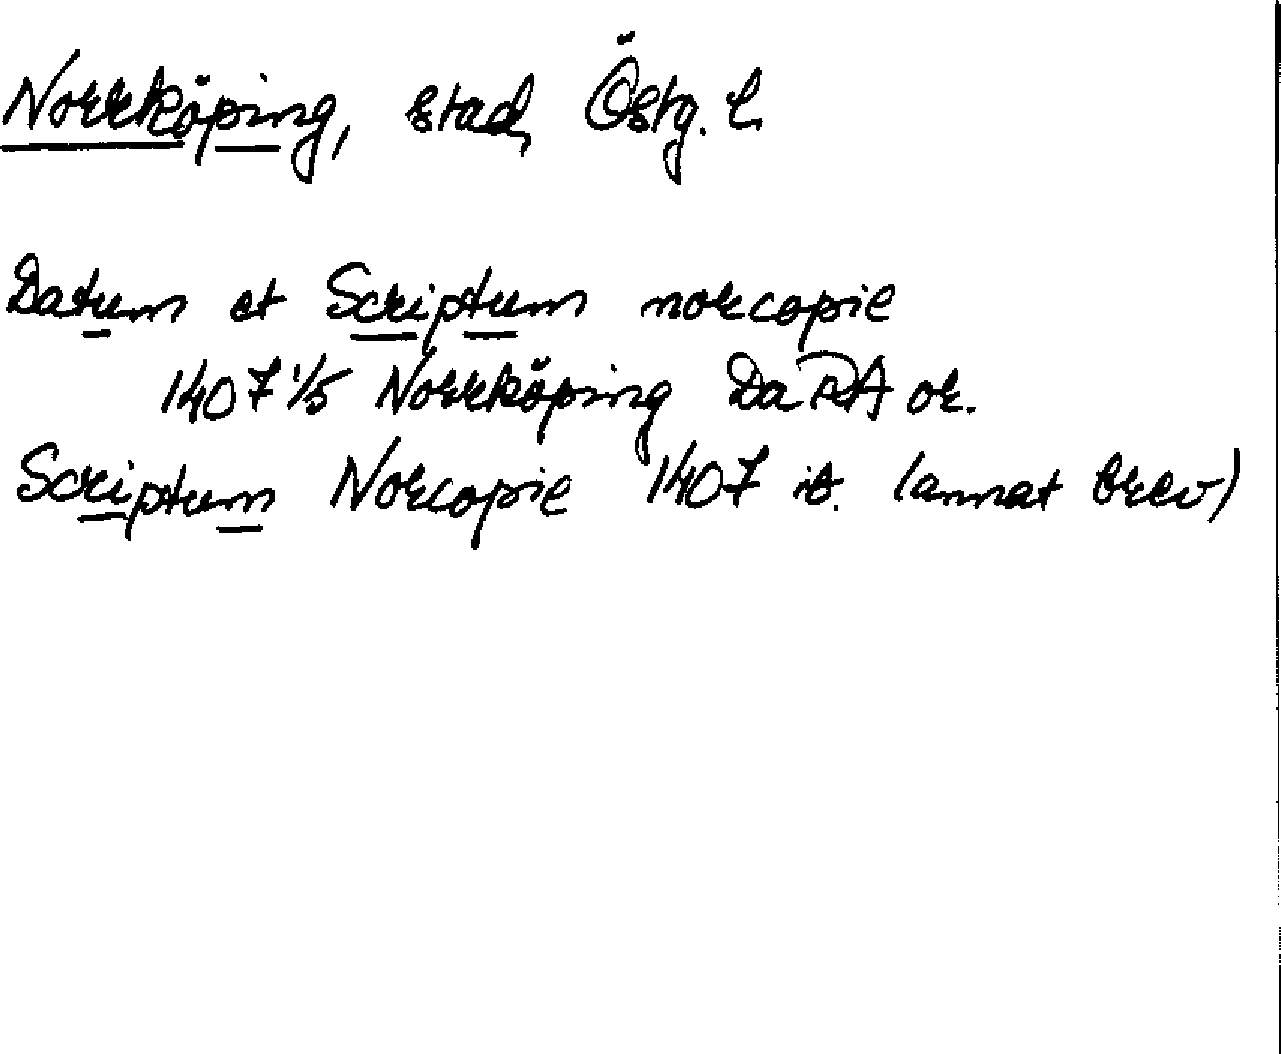 Norrköping, stad, Östg. l.
Datum et Scriptum norcopie
1407 1/5 Norrköping DaRA or.
Scriptum Norcopie 1407 ib. (annat brev)